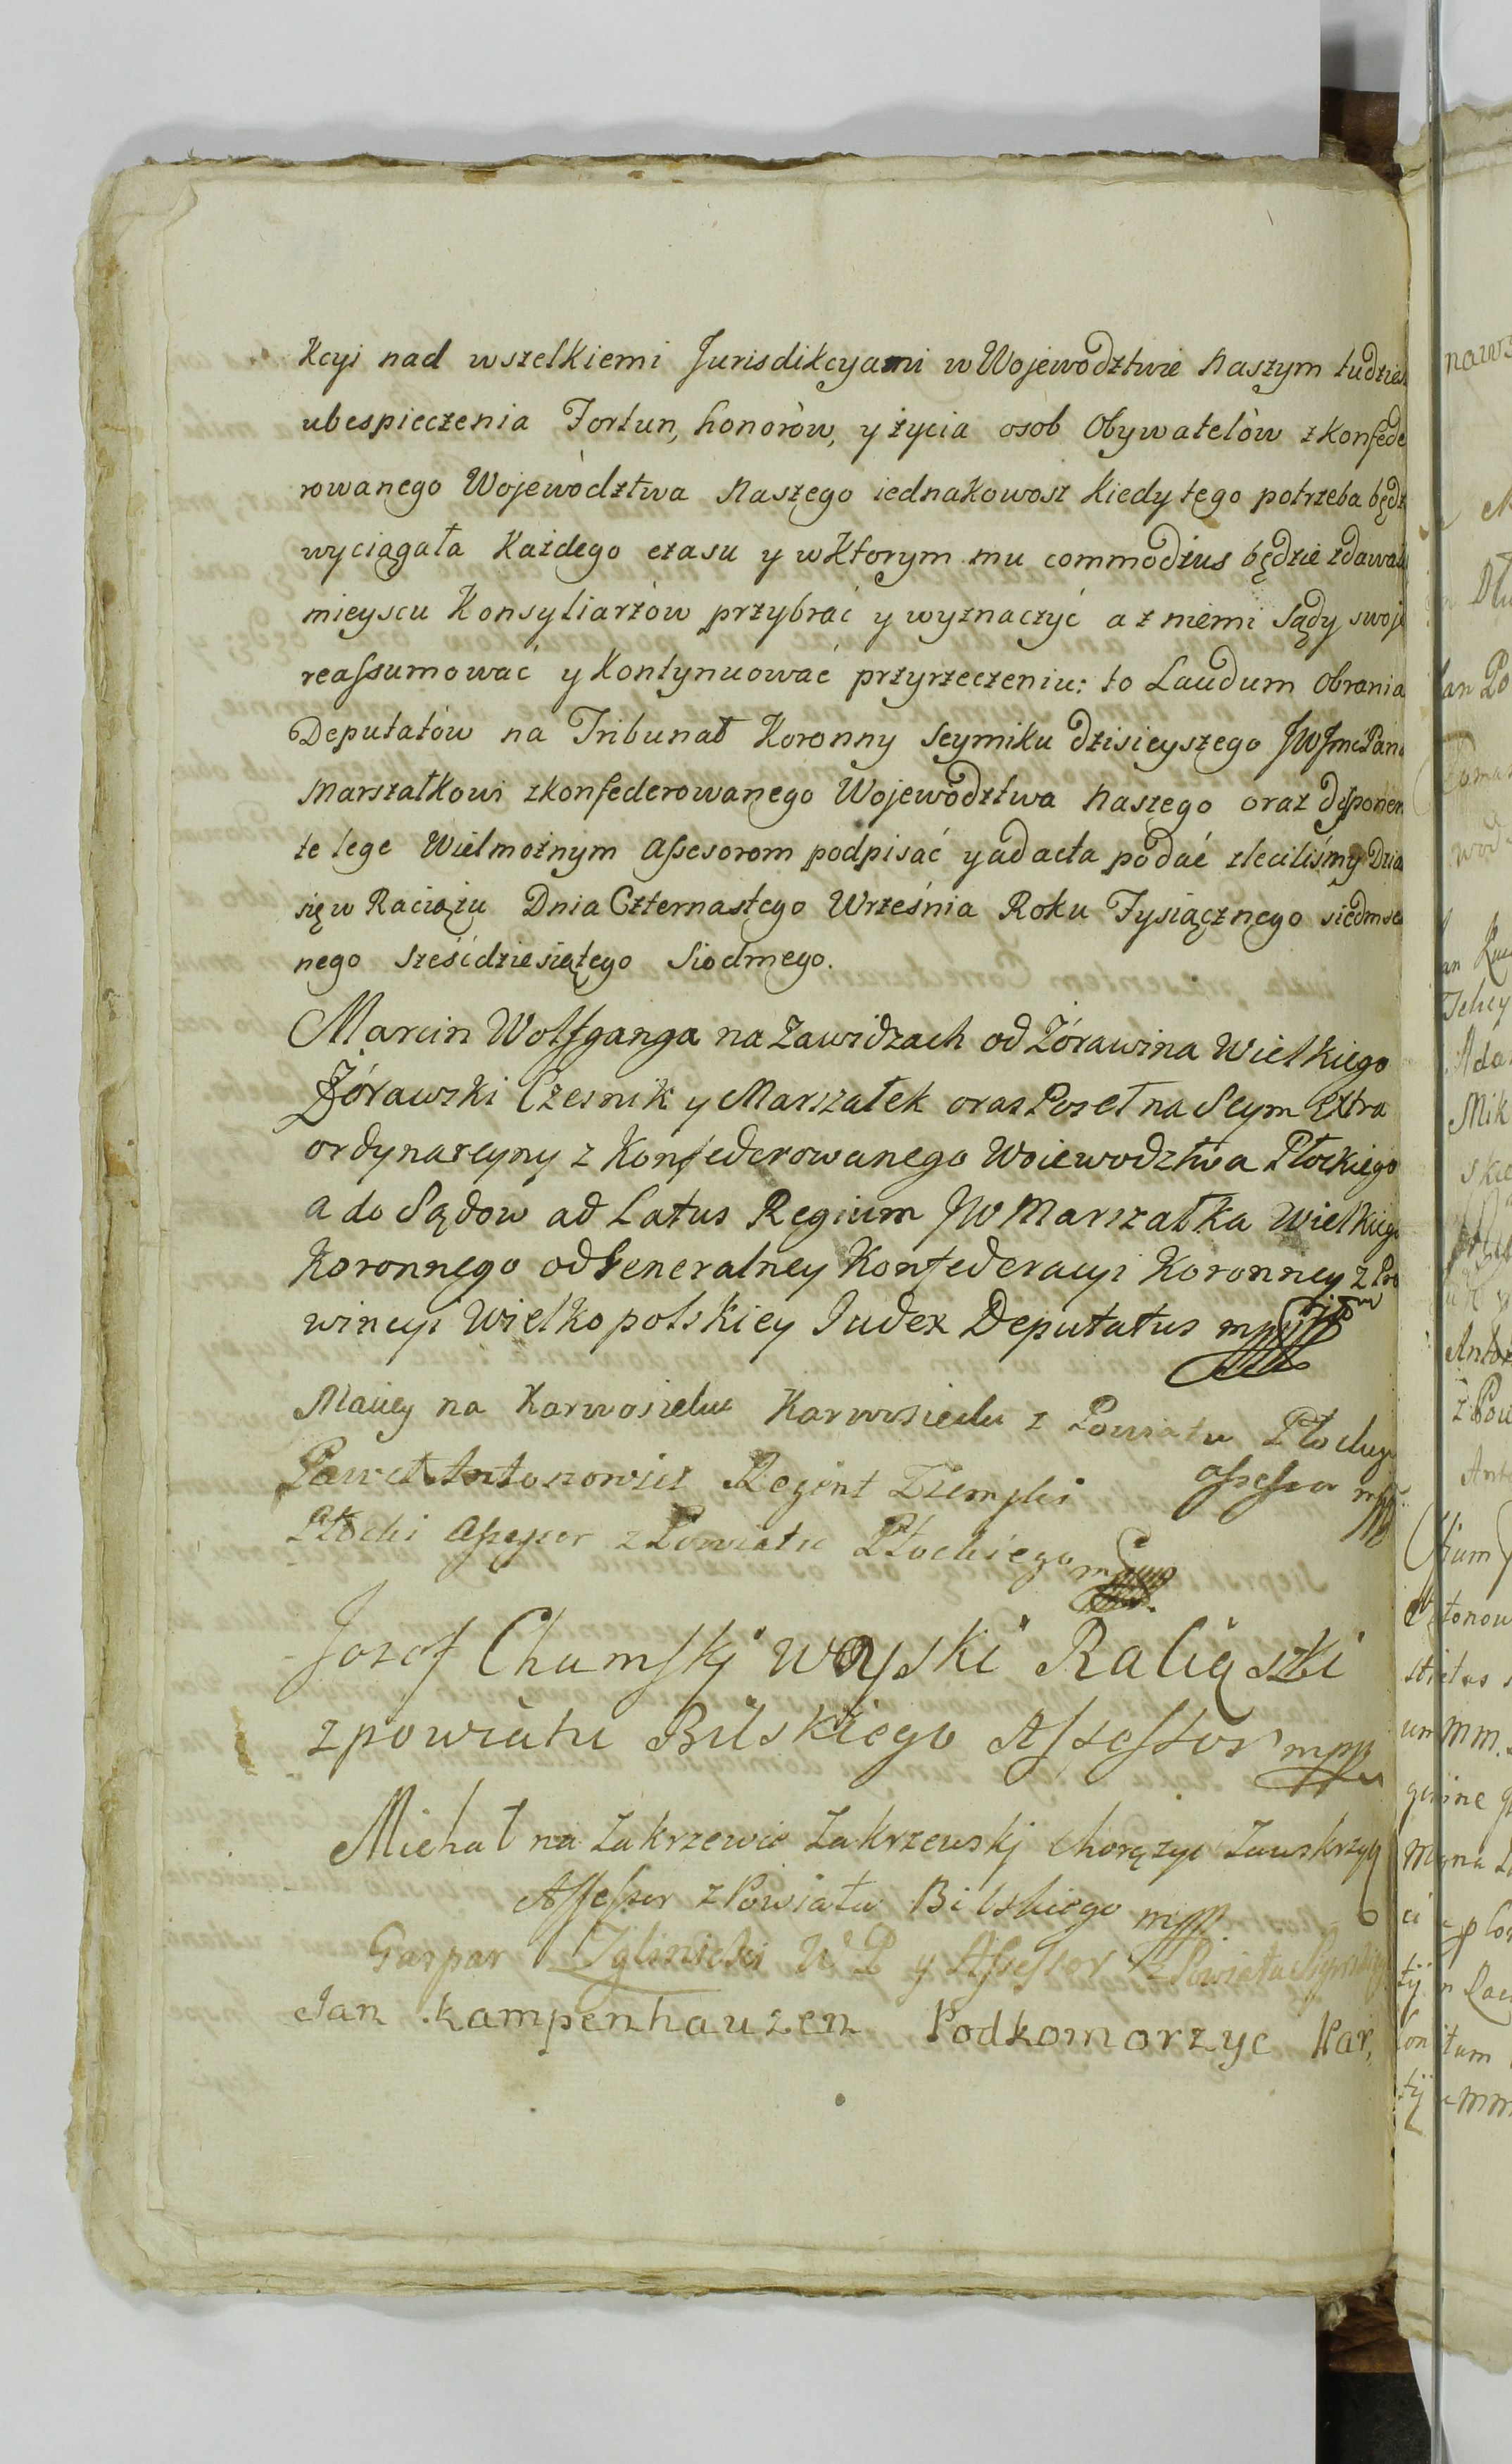 kcyi nad wszelkiemi Jurisdikcyami w Wojewodztwie Naszym tudzież
ubespieczenia Fortun, honorów, y życia osob Obywatelów zkonfede
rowanego Województwa Naszego iednakowosz kiedy tego potrzeba będz
wyciągała każdego czasu y wktorym mu commodius będzie zdawało
mieyscu Konsyliarzów przybrać y wyznaczyć a z niemi sądy swoje
reassumować y kontynuować przyrzeczeniu: to Laudum Obrania
Deputatów na Tribunał Koronny Seymiku dzisieyszego JWJmć Panu
Marszałkowi zkonfederowanego Województwa Naszego oraz disponen
te lege Wielmożnym Assesorom podpisać y ad acta podać zleciliśmy Dział
się w Raciążu Dnia Czternastego Września Roku Tysiącznego siedmset
nego sześćdziesiątego Siodmego.
Marcin Wolfganga na Zawidzach od Żórawina Wielkiego
Żórawski Czesnik y Marszałek oraz Poseł na Seym Extra
ordynaryiny z Konfederowanego Woiewodztwa Płockiego
a do Sądow ad Latus Regium JW Marszałka Wielkiego
Koronnego od Generalney Konfederacyi Koronney z Pro
wincyi Wielkopolskiey Judex Deputatus mpp
Maciey na Karwosieku Karwosiecki z Powiatu Płockiego
Assessor mpp
Paweł Antonowicz Regent Ziemski
Płocki Assessor z Powiatu Płockiego mpp
Jozef Chamskj Woyski Raciąski
z powiatu Bilskiego Assessor mpp
Michał na Zakrzewie Zakrzewskj Chorążyc Zawskrzyn
Assessor z Powiatu Bilskiego mpp
Gaspar Zglinicki W P y Assessor z Powiatu
Jan Kampenhauzen Podkomorzyc Par,